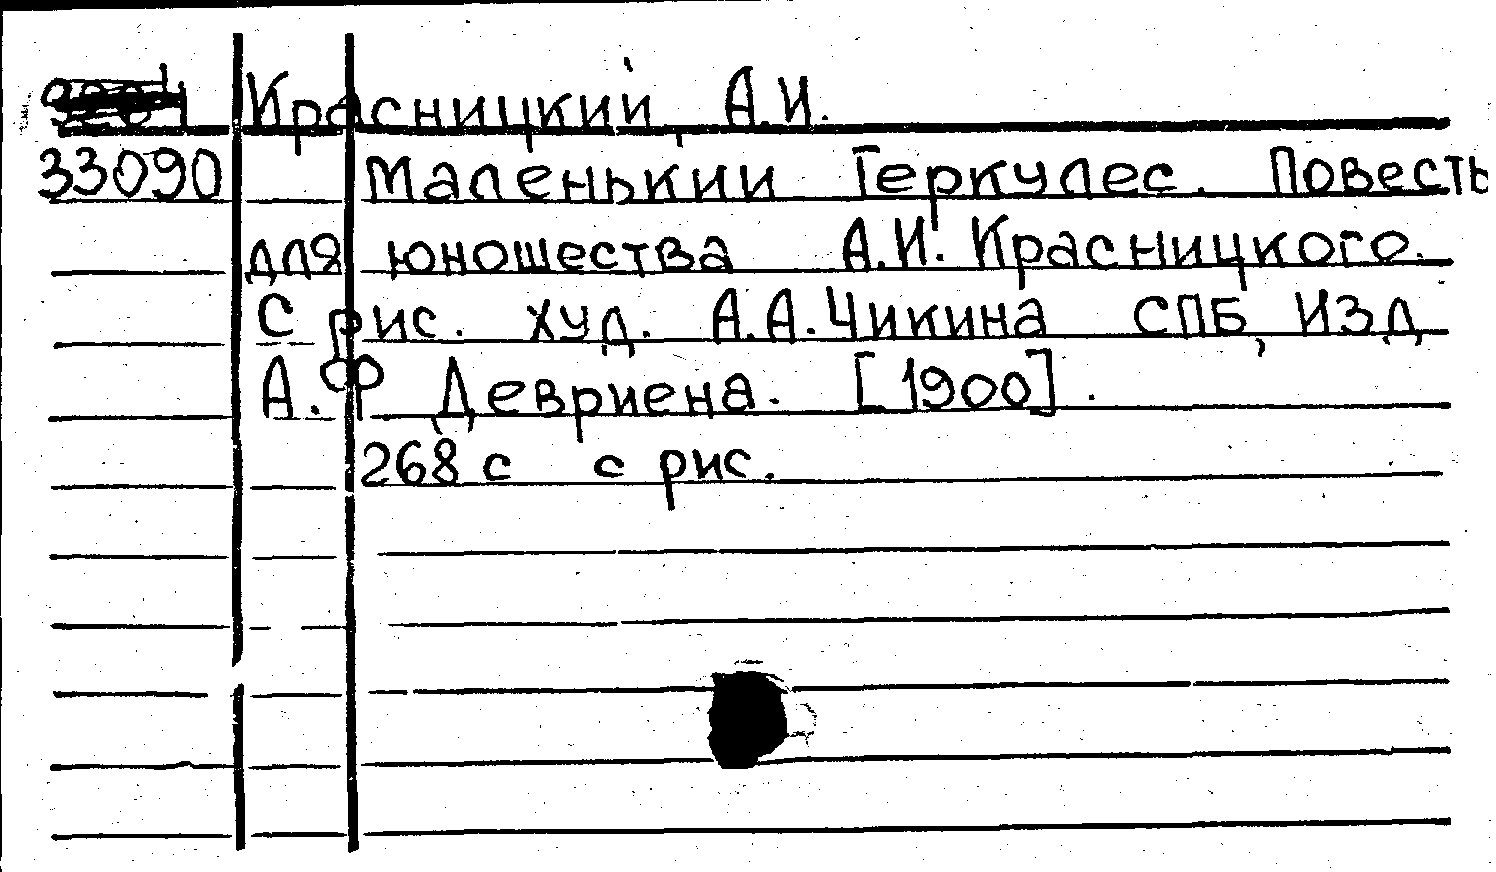 Красницкий, А.И.
33090 Маленькии Геркулес. Повесть
для юношества А.И. Красницкого.
С рис. худ. А.А.Чикина СПБ, ИЗД
А.Ф Девриена. [1900].
268 с с рис.